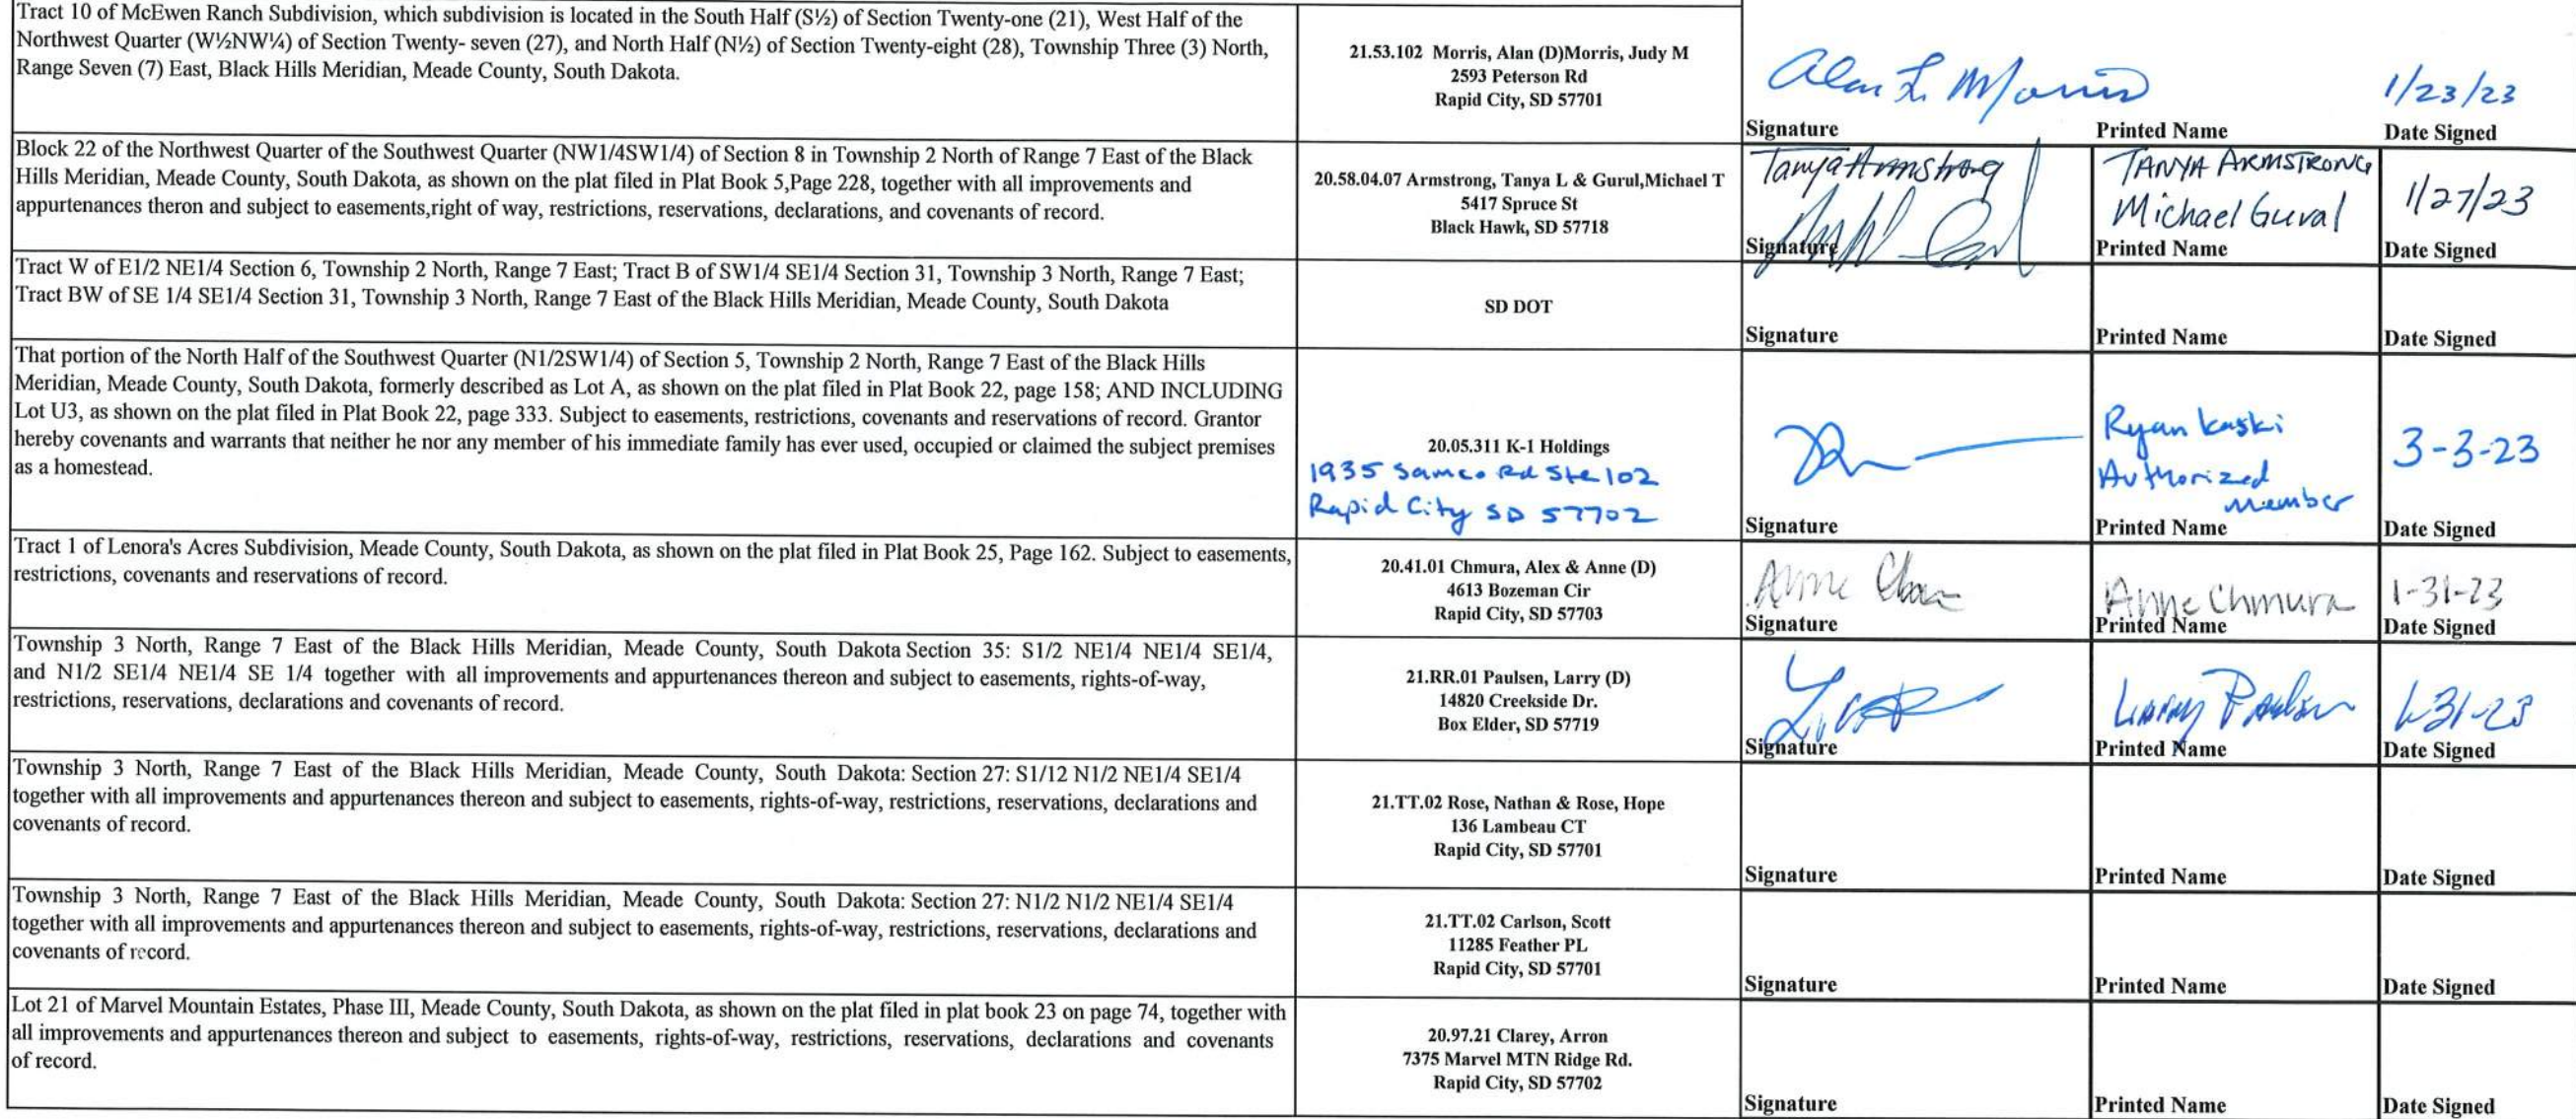 Tract 10 of McEwen Ranch Subdivision, which subdivision is located in the South Half (S½) of Section Twenty-one (21), West Half of the
Northwest Quarter (W½NW¼) of Section Twenty- seven (27), and North Half (N½) of Section Twenty-eight (28), Township Three (3) North,
Range Seven (7) East, Black Hills Meridian, Meade County, South Dakota.
21.53.102 Morris, Alan (D)Morris, Judy M
2593 Peterson Rd
Rapid City, SD 57701
Alan L. Morris
1/23/23
Signature
Printed Name
Date Signed
Block 22 of the Northwest Quarter of the Southwest Quarter (NW1/4SW1/4) of Section 8 in Township 2 North of Range 7 East of the Black
Hills Meridian, Meade County, South Dakota, as shown on the plat filed in Plat Book 5,Page 228, together with all improvements and
appurtenances theron and subject to easements,right of way, restrictions, reservations, declarations, and covenants of record.
20.58.04.07 Armstrong, Tanya L & Gurul,Michael T
5417 Spruce St
Black Hawk, SD 57718
Tanya Armstrong
Signature
TANYA ARMSTRONG
Michael Gural
Printed Name
1/27/23
Date Signed
Tract W of E1/2 NE1/4 Section 6, Township 2 North, Range 7 East; Tract B of SW1/4 SE1/4 Section 31, Township 3 North, Range 7 East;
Tract BW of SE 1/4 SE1/4 Section 31, Township 3 North, Range 7 East of the Black Hills Meridian, Meade County, South Dakota
SD DOT
Signature
Printed Name
Date Signed
That portion of the North Half of the Southwest Quarter (N1/2SW1/4) of Section 5, Township 2 North, Range 7 East of the Black Hills
Meridian, Meade County, South Dakota, formerly described as Lot A, as shown on the plat filed in Plat Book 22, page 158; AND INCLUDING
Lot U3, as shown on the plat filed in Plat Book 22, page 333. Subject to easements, restrictions, covenants and reservations of record. Grantor
hereby covenants and warrants that neither he nor any member of his immediate family has ever used, occupied or claimed the subject premises
as a homestead.
20.05.311 K-1 Holdings
1935 Samco Rd Ste 102
Rapid City SD 57702
Signature
Ryan Kaski
Authorized
Member
Printed Name
3-3-23
Date Signed
Tract 1 of Lenora's Acres Subdivision, Meade County, South Dakota, as shown on the plat filed in Plat Book 25, Page 162. Subject to easements,
restrictions, covenants and reservations of record.
20.41.01 Chmura, Alex & Anne (D)
4613 Bozeman Cir
Rapid City, SD 57703
Anne
Signature
Anne Chmura
Printed Name
1-31-23
Date Signed
Township 3 North, Range 7 East of the Black Hills Meridian, Meade County, South Dakota Section 35: S1/2 NE1/4 NE1/4 SE1/4,
and N1/2 SE1/4 NE1/4 SE 1/4 together with all improvements and appurtenances thereon and subject to easements, rights-of-way,
restrictions, reservations, declarations and covenants of record.
21.RR.01 Paulsen, Larry (D)
14820 Creekside Dr.
Box Elder, SD 57719
Signature
Larry Paulsen
Printed Name
1-31-23
Date Signed
Township 3 North, Range 7 East of the Black Hills Meridian, Meade County, South Dakota: Section 27: S1/12 N1/2 NE1/4 SE1/4
together with all improvements and appurtenances thereon and subject to easements, rights-of-way, restrictions, reservations, declarations and
covenants of record.
21.TT.02 Rose, Nathan & Rose, Hope
136 Lambeau CT
Rapid City, SD 57701
Signature
Printed Name
Date Signed
Township 3 North, Range 7 East of the Black Hills Meridian, Meade County, South Dakota: Section 27: N1/2 N1/2 NE1/4 SE1/4
together with all improvements and appurtenances thereon and subject to easements, rights-of-way, restrictions, reservations, declarations and
covenants of record.
21.TT.02 Carlson, Scott
11285 Feather PL
Rapid City, SD 57701
Signature
Printed Name
Date Signed
Lot 21 of Marvel Mountain Estates, Phase III, Meade County, South Dakota, as shown on the plat filed in plat book 23 on page 74, together with
all improvements and appurtenances thereon and subject to easements, rights-of-way, restrictions, reservations, declarations and covenants
of record.
20.97.21 Clarey, Arron
7375 Marvel MTN Ridge Rd.
Rapid City, SD 57702
Signature
Printed Name
Date Signed